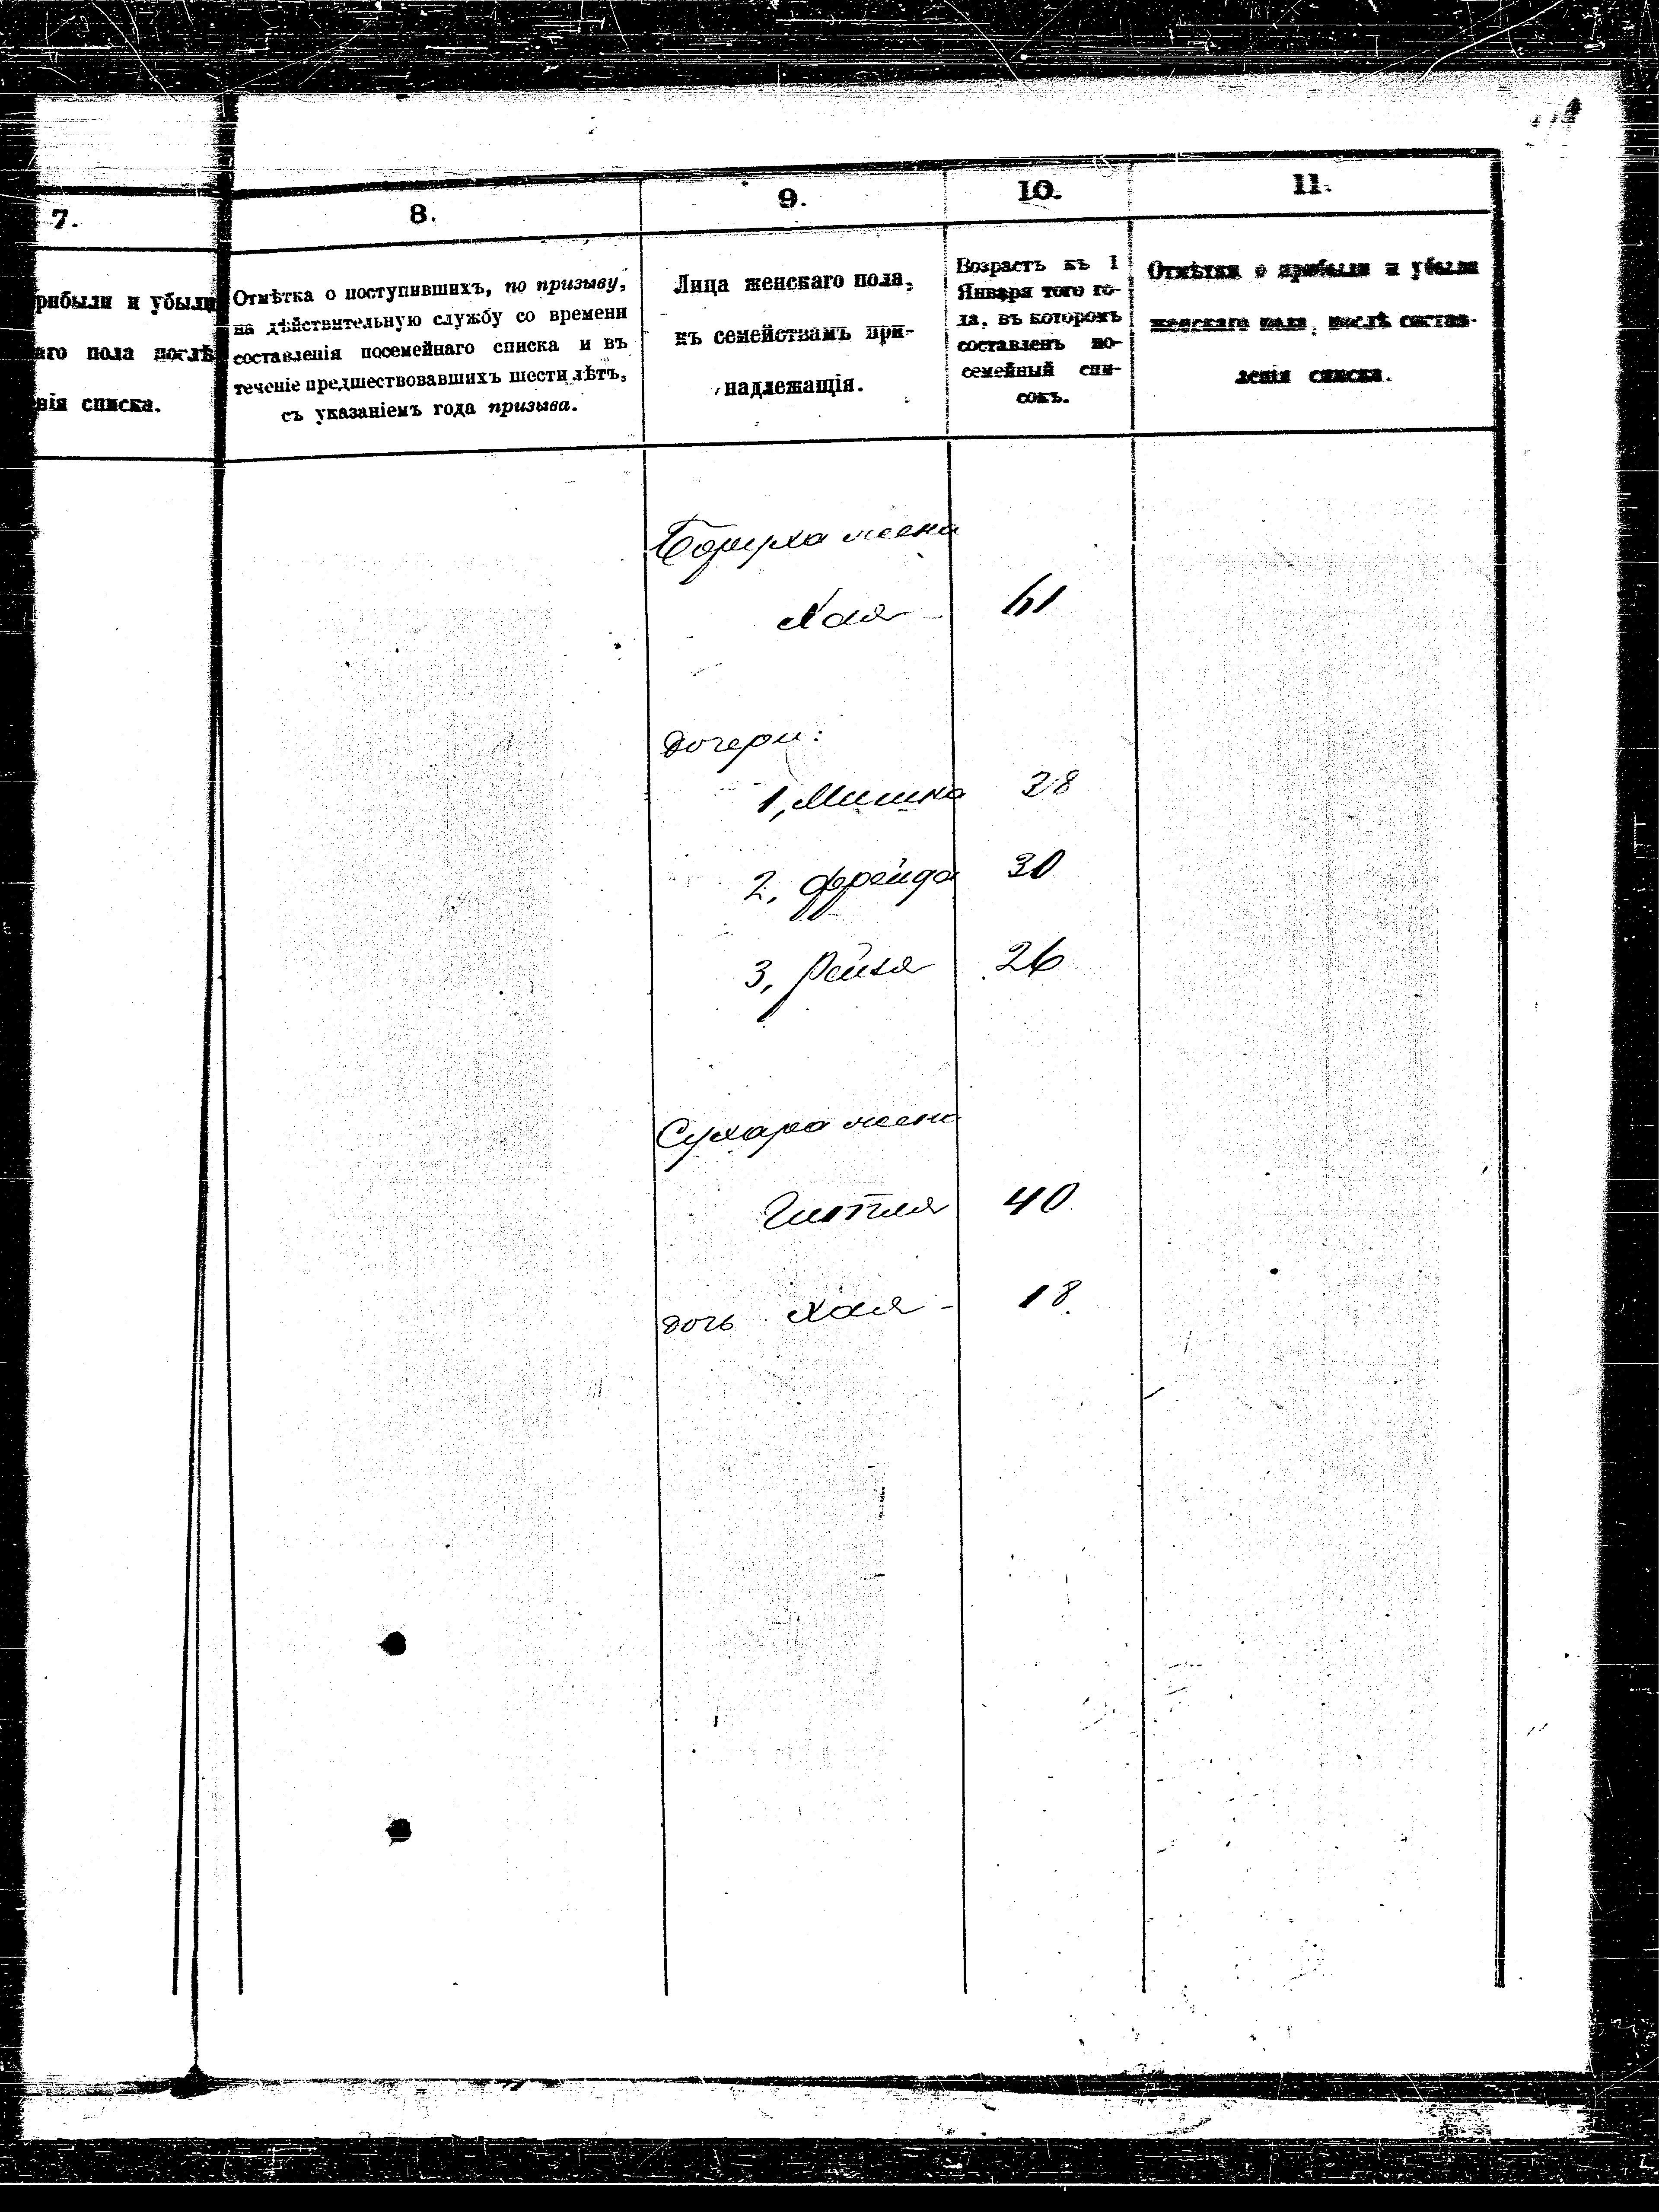 7.
рибыли и убыли
аго пола послѣ
нія списка.
8.
Отмѣтка о поступившихъ, по призыву,
на дѣйствительную службу со времени
составленія посемейнаго списка и въ
теченіе предшествовавшихъ шести лѣтъ,
съ указаніемъ года призыва.
9.
Лица женскаго пола,
къ семействамъ при-
надлежащія.
10.
Возрастъ къ 1
Января того го-
да, въ которомъ
составленъ по-
семейный спи-
сокъ.
11.
Отмѣтки о прибыли и убыли
женскаго пола, послѣ состав-
ленія списка.
Боруха жена
Хая - 61
дочери:
1, Мишка 38
2, Фрейда 30
3, Рейзя 26
Сухара жена
Гитля 40
дочь Хая - 18